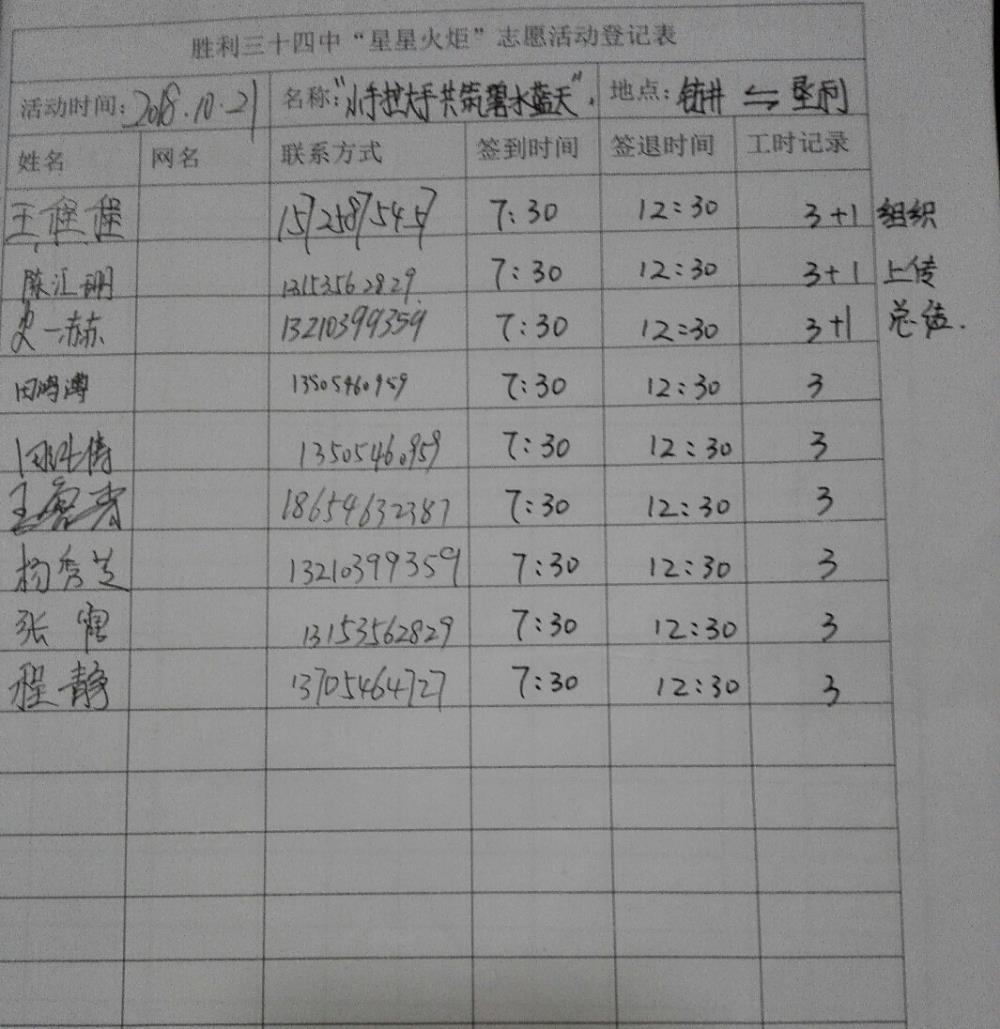 胜利三十四中“星星火炬”志愿活动登记表
活动时间：2018.10.21 名称：“小手拉大手共筑碧水蓝天”. 地点：钻井 ⇋ 垦利
姓名 网名 联系方式 签到时间 签退时间 工时记录
王程程 15725875457 7:30 12:30 3+1 组织
陈汇明 13153562829 7:30 12:30 3+1 上传
史一赫 13210399359 7:30 12:30 3+1 总结.
田鸿溥 13505460959 7:30 12:30 3
13505460959 7:30 12:30 3
王 18654632387 7:30 12:30 3
杨秀芝 13210399359 7:30 12:30 3
张 13153562829 7:30 12:30 3
程静 13705464727 7:30 12:30 3